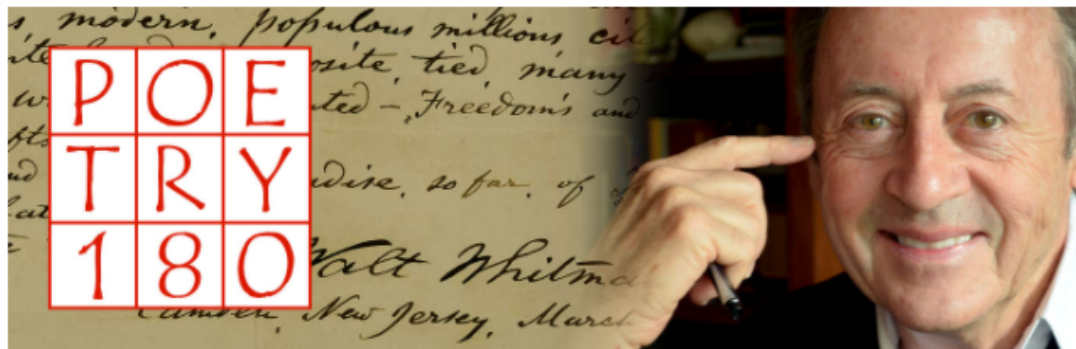 modern, populous millions, cit
POE
site, tied, many
ted – Freedom's and
TRY
dise, so far, of
180
Walt Whitma
Camden, New Jersey, March